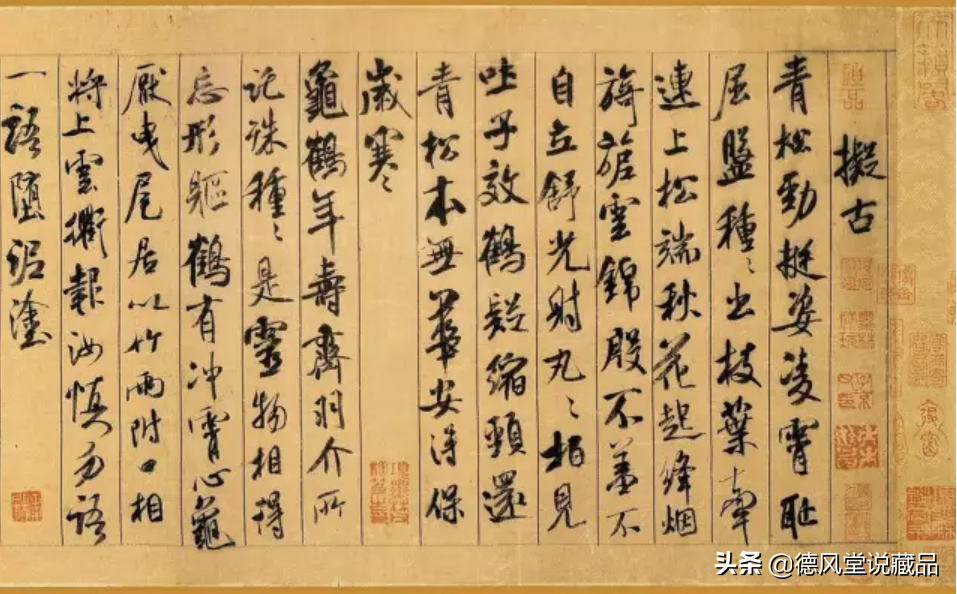 擬古
青松勁挺姿凌霄恥
屈盤種〻出枝葉牽
連上松端秋花起絳烟
旖旎雲錦殷不羞不
自立舒光射丸〻柏見
吐子效鶴疑縮頸還
青松本無華安得保
歲寒
龜鶴年壽齊羽介所
託殊種〻是靈物相得
忘形軀鶴有冲霄心龜
厭曳尾居以竹兩附口相
將上雲衢報汝慎勿語
一語墮泥塗
头条 @德风堂说藏品